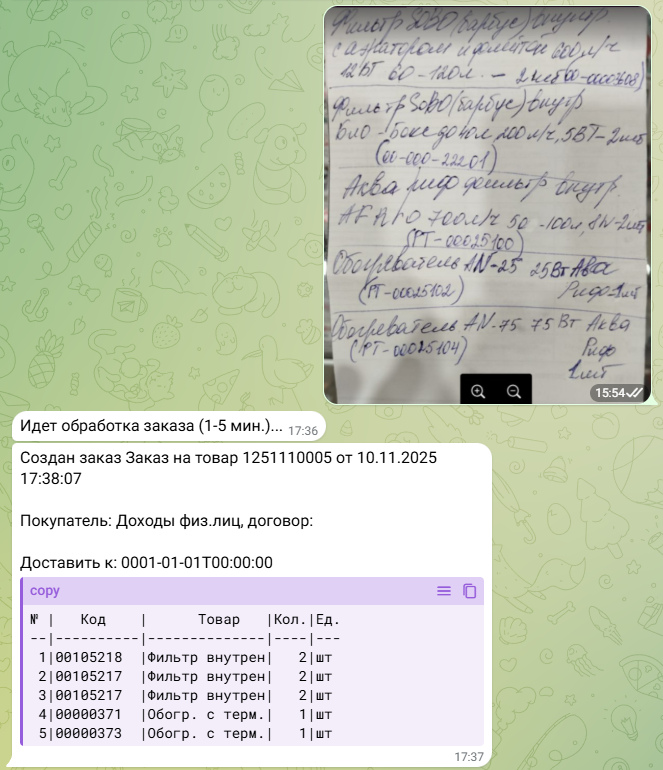 Фильтр SOBO (барбус) внутр.
с аэратором и флейтой 600 л/ч
12Вт 60-120л. - 2 шт
Фильтр SOBO (барбус) внутр
био-бокс до 40л, 200л/ч, 5ВТ-2шт
(00-000-22201)
Аква риф фильтр внутр.
700л/ч 50-100л, 8W-2шт
(РТ-00025100)
Обогреватель AN-25 25Вт Аква
(РТ-00025102) Риф-1шт
Обогреватель AN-75 75Вт Аква
(РТ-00025104) Риф
1шт
15:54
Идет обработка заказа (1-5 мин.)... 17:36
Создан заказ Заказ на товар 1251110005 от 10.11.2025
17:38:07
Покупатель: Доходы физ.лиц, договор:
Доставить к: 0001-01-01T00:00:00
copy
№ | Код | Товар |Кол.|Ед.
--|----------|--------------|----|---
1|00105218 |Фильтр внутрен| 2|шт
2|00105217 |Фильтр внутрен| 2|шт
3|00105217 |Фильтр внутрен| 2|шт
4|00000371 |Обогр. с терм.| 1|шт
5|00000373 |Обогр. с терм.| 1|шт
17:37